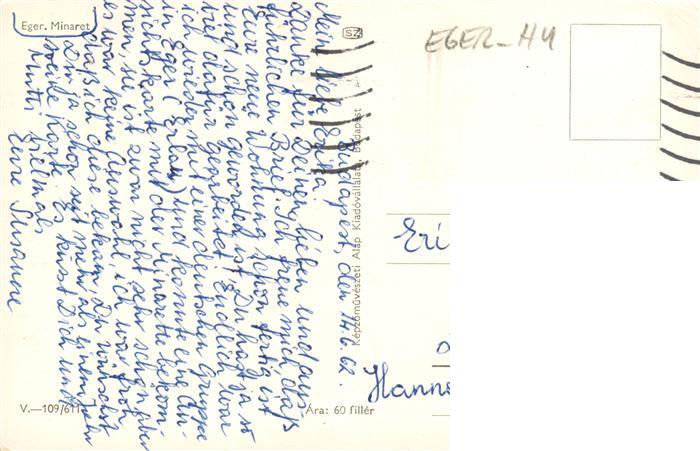 Eger. Minaret
SZ
EGER-HU
Budapest, den 14.6.62.
Meine liebe Erika!
Danke für Deinen lieben und aus-
führlichen Brief. Ich freue mich daß
Eure neue Wohnung schon fertig ist
und schön geworden ist. Du hast ja so
viel dafür gearbeitet. Endlich war
ich wieder mit einer deutschen Gruppe
in Eger (Erlau) und konnte eine An-
sichtskarte mit der Minarette bekom-
men, sie ist zwar nicht sehr schön, aber
es war keine Auswahl, ich war froh
daß ich diese bekam. Du wünschst
Dir ja schon seit mehr als einem Jahr
so eine Karte. Es küsst Dich und
Mutti vielmals
Eure Susanne
Képzőművészeti Alap Kiadóvállalata, Budapest
Eri
Hanno
V.—109/611
Ára: 60 fillér